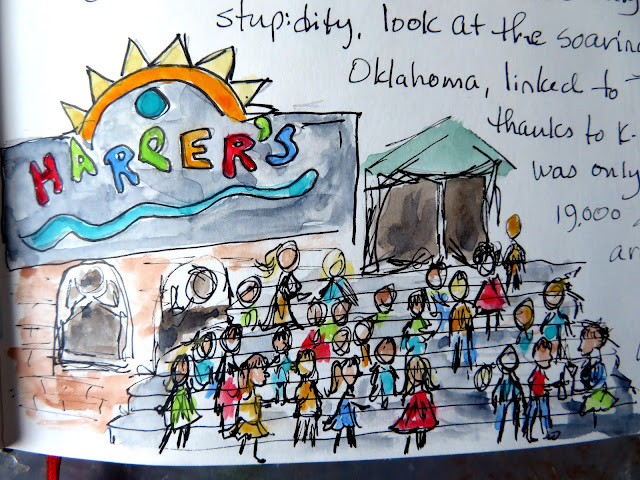 stupidity, look at the soarin
Oklahoma, linked to
thanks to K-
was only
19,000
ar
HARPER'S